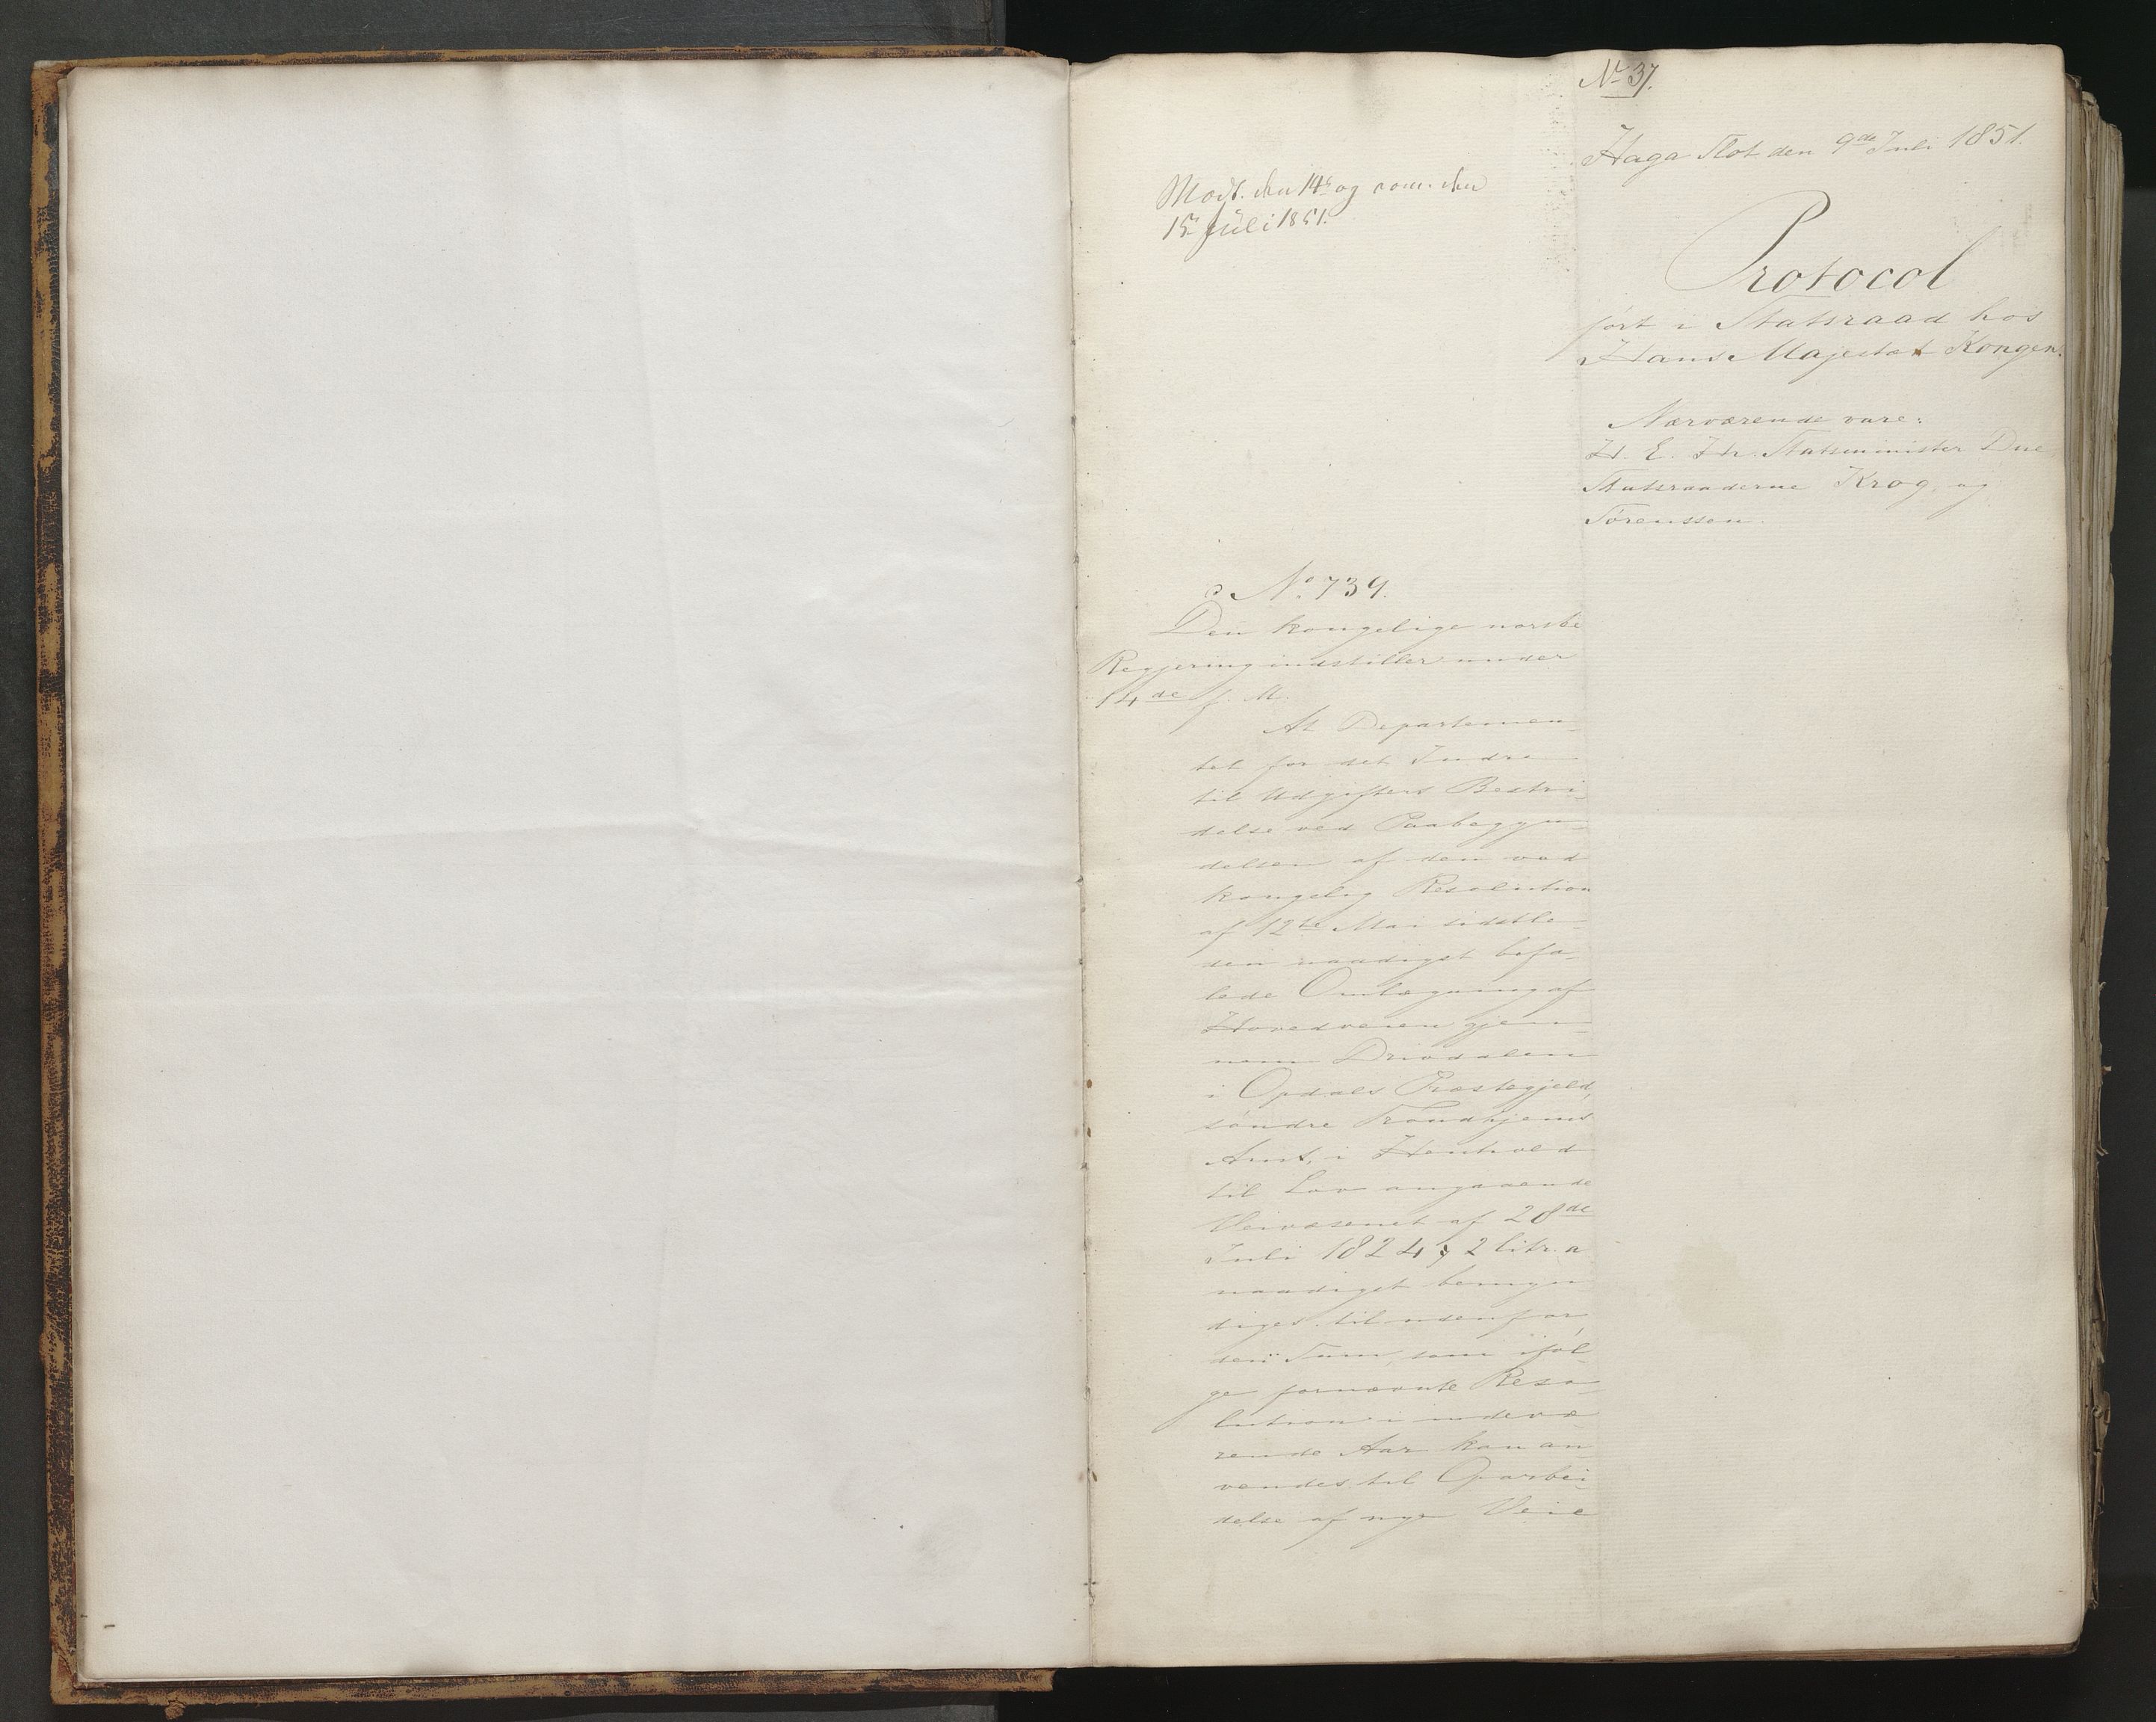 No 37.
Haga Slot den 9de Juli 1851.
Modt. den 14de og rem. den
15 Juli 1851.
Protocol
ført i Statsraad hos
Hans Majestæt Kongen.
Nærværende vare:
H. E. Hr. Statsminister Due
Statsraaderne Krog og
Sørenssen.
No 739.
Den kongelige norske
Regjering indstiller under
14de f. M.
At Departemen-
tet for det Indre
til Udgifters Bestri-
delse ved Paabegyn-
delsen af den ved
kongelig Resolution
af 12te Mai sidstle-
den naadigst befa-
lede Omlægning af
Hovedveien gjen-
nem Drivdalen
i Opdals Præstegjeld,
søndre Trondhjems
Amt, i Henhold
til Lov angaaende
Veivæsenet af 28de
Juli 1824 § 2 litr. a
naadigst bemyn-
diges til udenfor
den Sum, som iføl-
ge fornævnte Reso-
lution i indevæ-
rende Aar kan an-
vendes til Oparbei-
delse af nye Veie